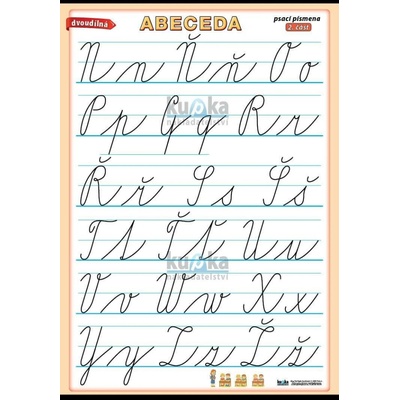 dvoudílná
ABECEDA
psací písmena
2. část
N n Ň ň O o
P p Q q R r
Ř ř S s Š š
T t Ť ť U u
V v W w X x
Y y Z z Ž ž
kupka
nakladatelství
kupka
nakladatelství
kupka